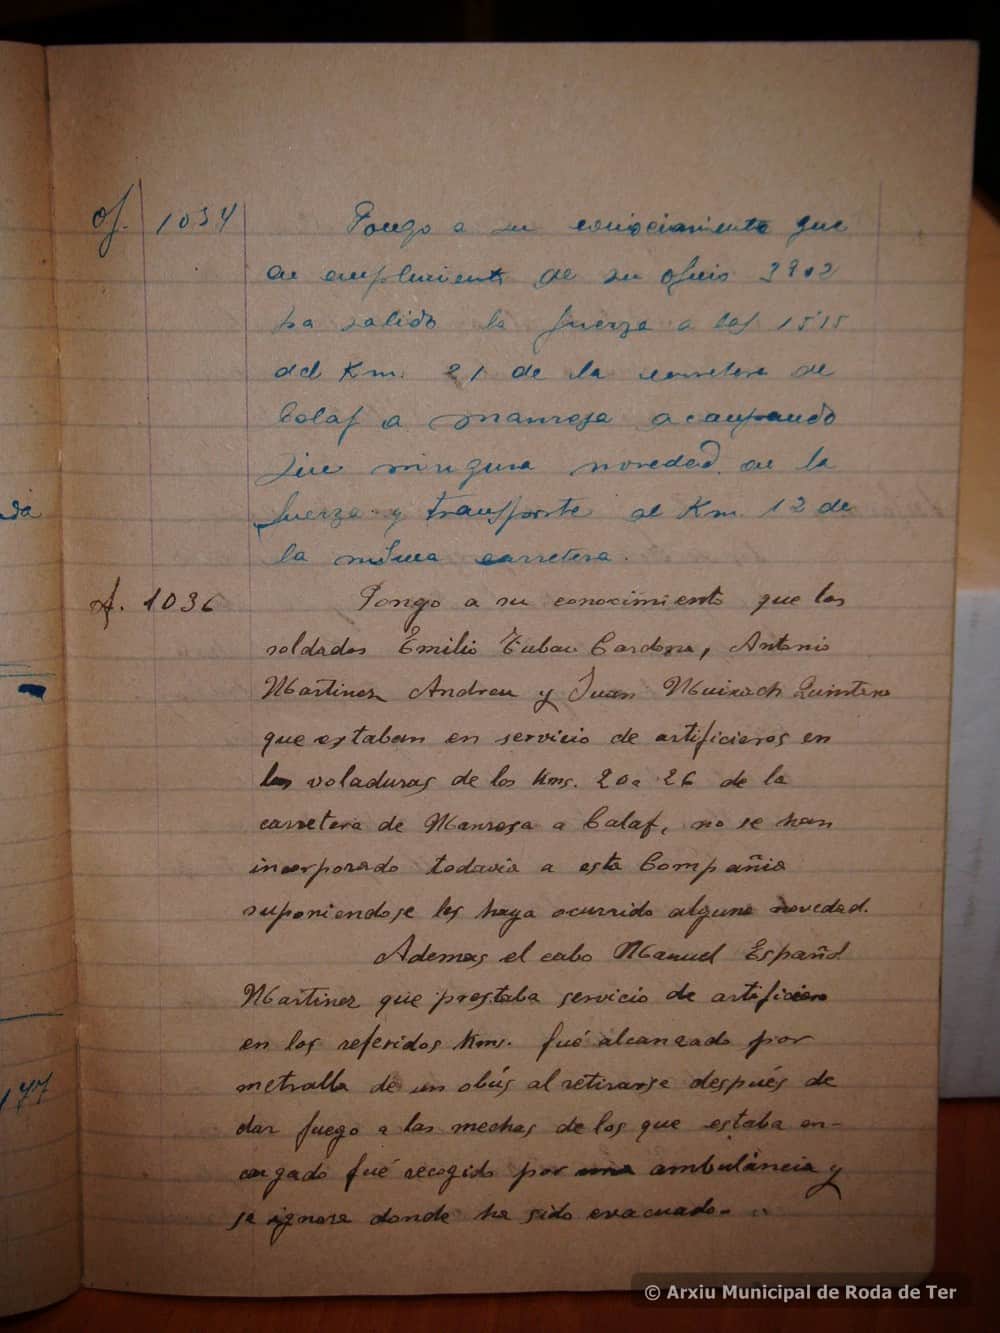 of. 1034 Pongo a su conocimiento que
en cumplimiento de su oficio 3902
ha salido la fuerza a las 15'15
del Km. 21 de la carretera de
Calaf a Manresa acampando
sin ninguna novedad de la
fuerza y transporte al Km. 12 de
la misma carretera.
of. 1036 Pongo a su conocimiento que los
soldados Emilio Tubau Cardona, Antonio
Martinez Andreu y Juan Quintero
que estaban en servicio de artificieros en
las voladuras de los Kms. 20 a 26 de la
carretera de Manresa a Calaf, no se han
incorporado todavia a esta Compañia
suponiendose les haya ocurrido alguna novedad.
Ademas el cabo Manuel Español
Martinez que prestaba servicio de artificiero
en los referidos Kms. fué alcanzado por
metralla de un obús al retirarse después de
dar fuego a las mechas de los que estaba en-
cargado fué recogido por una ambuláncia y
se ignora donde ha sido evacuado.
da
177
© Arxiu Municipal de Roda de Ter